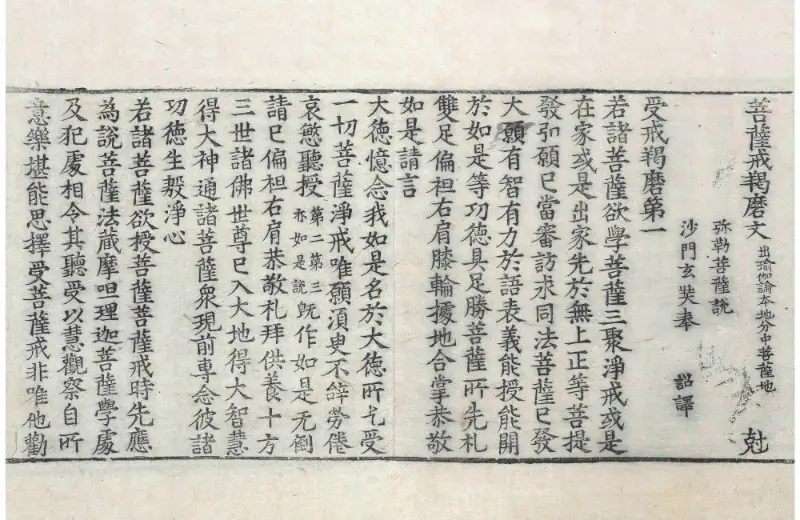 菩薩戒羯磨文 出瑜伽論本地分中菩薩地 尅
弥勒菩薩說
沙門玄奘奉 詔譯
受戒羯磨第一
若諸菩薩欲學菩薩三聚淨戒或是
在家或是出家先於無上正等菩提
發弘願已當審訪求同法菩薩已發
大願有智有力於語表義能授能開
於如是等功德具足勝菩薩所先礼
雙足偏袒右肩膝輪據地合掌恭敬
如是請言
大德憶念我如是名於大德所乞受
一切菩薩淨戒唯願須臾不辝勞倦
哀愍聽授 第二第三亦如是說 旣作如是无倒
請已偏袒右肩恭敬礼拜供養十方
三世諸佛世尊已入大地得大智慧
得大神通諸菩薩衆現前專念彼諸
功德生殷淨心
若諸菩薩欲授菩薩菩薩戒時先應
為說菩薩法蔵摩呾理迦菩薩學處
及犯處相令其聽受以慧觀察自所
意樂堪能思擇受菩薩戒非唯他勸